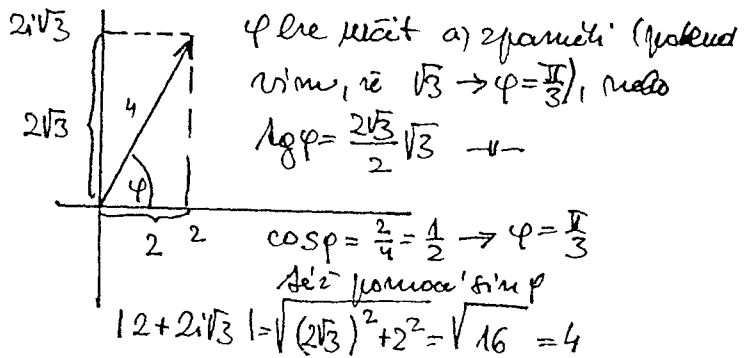 2i√3
2√3
4
φ
2
2
φ lze určit a) zpaměti (pokud
vím, že √3 → φ = π/3), nebo
tgφ = 2√3/2 √3 —〃—
cosφ = 2/4 = 1/2 → φ = π/3
též pomocí sin φ
|2 + 2i√3| = √((2√3)² + 2²) = √16 = 4